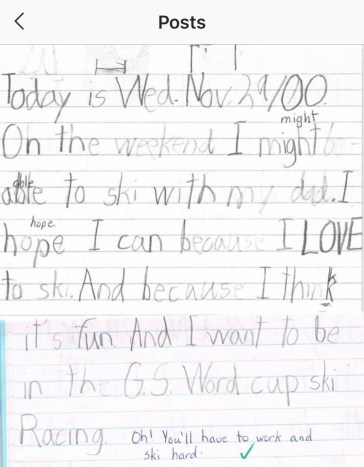 Posts
Today is Wed. Nov. 29/00.
might
On the weekend I might be
able
able to ski with my dad. I
hope
hope I can because I LOVE
to ski. And because I think
it's fun. And I want to be
in the G.S. Word cup ski
Racing.
Oh! You'll have to work and
ski hard.